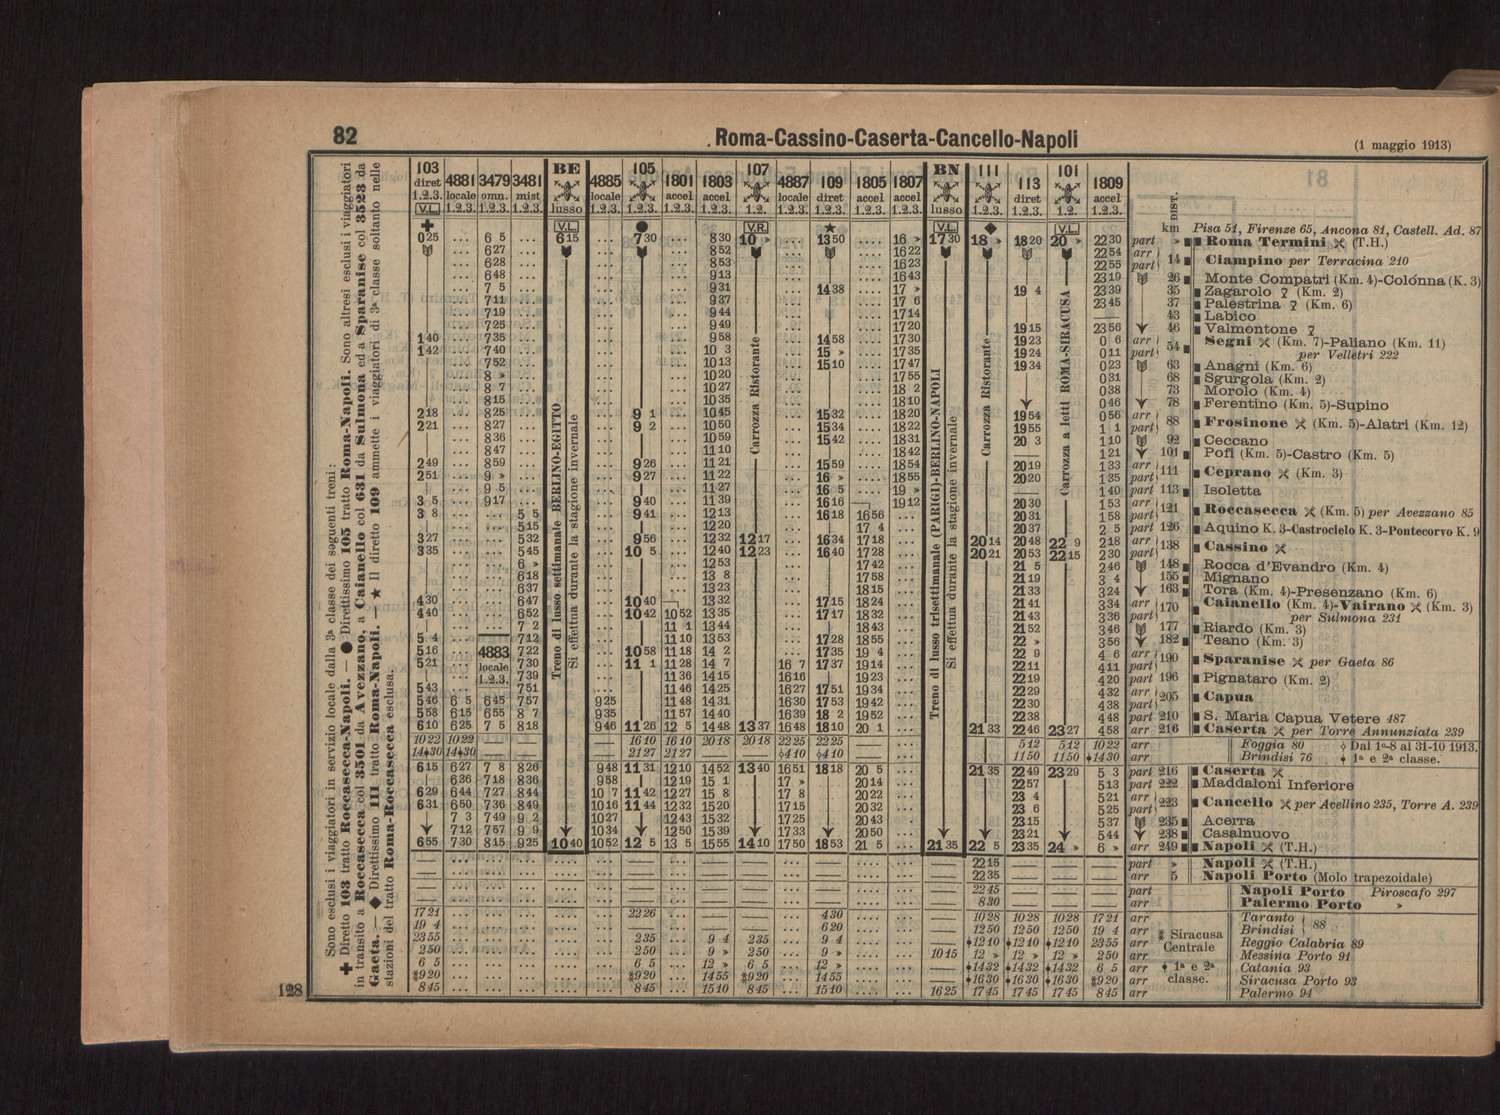 82
Roma-Cassino-Caserta-Cancello-Napoli
(1 maggio 1913)
Sono esclusi i viaggiatori in servizio locale dalla 3ª classe dei seguenti treni:
✚ Diretto 103 tratto Roccasecca-Napoli. — ● Direttissimo 105 tratto Roma-Napoli. Sono altresì esclusi i viaggiatori
in transito a Roccasecca col 3501 da Avezzano, a Caianello col 631 da Sulmona ed a Sparanise col 3523 da
Gaeta. — ◆ Direttissimo 111 tratto Roma-Napoli. — ★ Il diretto 109 ammette i viaggiatori di 3ª classe soltanto nelle
stazioni del tratto Roma-Roccasecca esclusa.
103 4881 3479 3481 BE 4885 105 1801 1803 107 4887 109 1805 1807 BN 111 113 101 1809
diret locale omn. mist lusso locale accel accel locale diret accel accel lusso diret accel
1.2.3. 1.2.3. 1.2.3. 1.2.3. 1.2.3. 1.2.3. 1.2.3. 1.2.3. 1.2. 1.2.3. 1.2.3. 1.2.3. 1.2.3. 1.2.3. 1.2.3. 1.2. 1.2.3.
V.L. V.L. V.R. V.L. V.L.
DIST.
km Pisa 51, Firenze 65, Ancona 81, Castell. Ad. 87
0 25 ... 6 5 ... 6 15 ... 7 30 ... 8 30 10 » ... 13 50 ... 16 » 17 30 18 » 18 20 20 » 22 30 part » Roma Termini (T.H.)
6 27 8 52 16 22 22 54 arr
6 28 8 53 16 23 22 55 part 14 Ciampino per Terracina 210
6 48 9 13 16 43 23 19 26 Monte Compatri (Km. 4)-Colónna (K. 3)
7 5 9 31 14 38 17 » 19 4 23 39 35 Zagarolo (Km. 2)
7 11 9 37 17 6 23 45 37 Palestrina (Km. 6)
7 19 9 44 17 14 — 43 Labico
7 25 9 49 17 20 19 15 23 56 46 Valmontone
1 40 7 35 9 58 14 58 17 30 19 23 0 6 arr 54 Segni (Km. 7)-Paliano (Km. 11)
1 42 7 40 10 3 15 » 17 35 19 24 0 11 part per Velletri 222
7 52 10 13 15 10 17 47 19 34 0 23 63 Anagni (Km. 6)
8 » 10 20 17 55 0 31 68 Sgurgola (Km. 2)
8 7 10 27 18 2 0 38 73 Morolo (Km. 4)
8 15 10 35 18 10 0 46 78 Ferentino (Km. 5)-Supino
2 18 8 25 9 1 10 45 15 32 18 20 19 54 0 56 arr
2 21 8 27 9 2 10 50 15 34 18 22 19 55 1 1 part 88 Frosinone (Km. 5)-Alatri (Km. 12)
8 36 10 59 15 42 18 31 20 3 1 10 92 Ceccano
8 47 11 10 18 42 — 1 21 101 Pofi (Km. 5)-Castro (Km. 5)
2 49 8 59 9 26 11 21 15 59 18 54 20 19 1 33 arr
2 51 9 » 9 27 11 22 16 » 18 55 20 20 1 35 part 111 Ceprano (Km. 3)
9 5 11 27 16 5 19 » 1 40 part 113 Isoletta
3 5 9 17 9 40 11 39 16 16 19 12 20 30 1 53 arr
3 8 5 5 9 41 12 13 16 18 16 56 20 31 1 58 part 121 Roccasecca (Km. 5) per Avezzano 85
5 15 12 20 17 4 20 37 2 5 part 126 Aquino K. 3-Castrocielo K. 3-Pontecorvo K. 9
3 27 5 32 9 56 12 32 12 17 16 34 17 18 20 14 20 48 22 9 2 18 arr
3 35 5 45 10 5 12 40 12 23 16 40 17 28 20 21 20 53 22 15 2 30 part 138 Cassino
6 » 12 53 17 42 21 5 2 46 148 Rocca d'Evandro (Km. 4)
6 18 13 8 17 58 21 19 3 4 155 Mignano
6 37 13 23 18 15 21 33 3 24 163 Tora (Km. 4)-Presenzano (Km. 6)
4 30 6 47 10 40 — 13 32 17 15 18 24 21 41 3 34 arr 170 Caianello (Km. 4)-Vairano (Km. 3)
4 40 6 52 10 42 10 52 13 35 17 17 18 32 21 43 3 36 part per Sulmona 231
7 2 11 1 13 44 18 43 21 52 3 46 177 Riardo (Km. 3)
5 4 7 12 11 10 13 53 17 28 18 55 22 » 3 56 182 Teano (Km. 3)
5 16 4883 7 22 10 58 11 18 14 2 17 35 19 4 22 9 4 6 arr
5 21 locale 7 30 11 1 11 28 14 7 16 7 17 37 19 14 22 11 4 11 part 190 Sparanise per Gaeta 86
1.2.3. 7 39 11 36 14 15 16 16 19 23 22 19 4 20 part 196 Pignataro (Km. 2)
5 43 7 51 11 46 14 25 16 27 17 51 19 34 22 29 4 32 arr
5 46 6 5 6 45 7 57 9 25 11 48 14 31 16 30 17 53 19 42 22 30 4 38 part 205 Capua
5 58 6 15 6 55 8 7 9 35 11 57 14 40 16 39 18 2 19 52 22 38 4 48 part 210 S. Maria Capua Vetere 487
6 10 6 25 7 5 8 18 9 46 11 26 12 5 14 48 13 37 16 48 18 10 20 1 21 33 22 46 23 27 4 58 arr 216 Caserta per Torre Annunziata 239
10 22 10 22 — — — 16 10 16 10 20 18 20 18 22 25 22 25 — — 5 12 5 12 10 22 arr Foggia 80 Dal 1º-8 al 31-10 1913.
14 30 14 30 — — — 21 27 21 27 — — 4 10 4 10 — — 11 50 11 50 14 30 arr Brindisi 76 1ª e 2ª classe.
6 15 6 27 7 8 8 26 9 48 11 31 12 10 14 52 13 40 16 51 18 18 20 5 21 35 22 49 23 29 5 3 part 216 Caserta
6 36 7 18 8 36 9 58 12 19 15 1 17 » 20 14 22 57 5 13 part 222 Maddaloni Inferiore
6 29 6 44 7 27 8 44 10 7 11 42 12 27 15 8 17 8 20 22 23 4 5 21 arr
6 31 6 50 7 36 8 49 10 16 11 44 12 32 15 20 17 15 20 32 23 6 5 25 part 223 Cancello per Avellino 235, Torre A. 239
7 3 7 49 9 2 10 27 12 43 15 32 17 25 20 43 23 15 5 37 235 Acerra
7 12 7 57 9 9 10 34 12 50 15 39 17 33 20 50 23 21 5 44 238 Casalnuovo
6 55 7 30 8 15 9 25 10 40 10 52 12 5 13 5 15 55 14 10 17 50 18 53 21 5 21 35 22 5 23 35 24 » 6 » arr 249 Napoli (T.H.)
22 15 part » Napoli (T.H.)
22 35 arr 5 Napoli Porto (Molo trapezoidale)
22 45 part Napoli Porto Piroscafo 297
8 30 arr Palermo Porto »
17 21 22 26 4 30 10 28 10 28 10 28 17 21 arr Taranto
19 4 6 20 12 50 12 50 12 50 19 4 arr Brindisi 88
23 55 2 35 9 4 2 35 9 4 12 10 12 10 12 10 23 55 arr Reggio Calabria 89
2 50 2 50 9 » 2 50 9 » 10 15 12 » 12 » 12 » 2 50 arr Messina Porto 91
6 5 6 5 12 » 6 5 12 » — 14 32 14 32 14 32 6 5 arr Catania 93
9 20 9 20 14 55 9 20 14 55 — 16 30 16 30 16 30 9 20 arr Siracusa Porto 93
8 45 8 45 15 10 8 45 15 10 16 25 17 45 17 45 17 45 8 45 arr Palermo 94
Siracusa Centrale
1ª e 2ª classe.
Treno di lusso settimanale BERLINO-EGITTO
Si effettua durante la stagione invernale
Carrozza Ristorante
Treno di lusso trisettimanale (PARIGI)-BERLINO-NAPOLI
Si effettua durante la stagione invernale
Carrozza Ristorante
Carrozza a letti ROMA-SIRACUSA
128